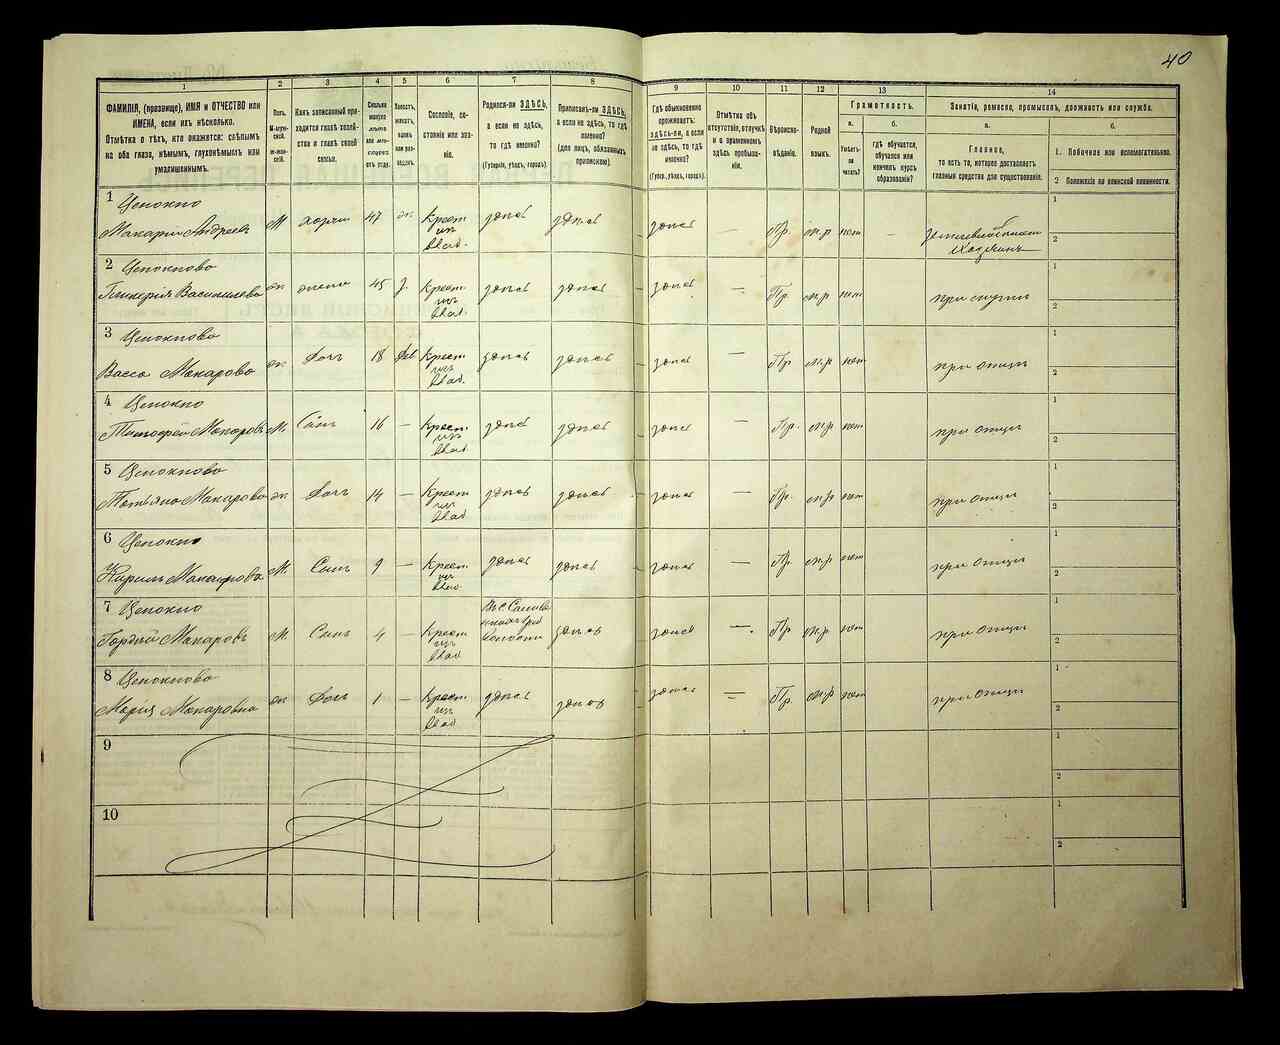 40
1 2 3 4 5 6 7 8 9 10 11 12 13 14
ФАМИЛІЯ, (прозвище), ИМЯ и ОТЧЕСТВО или
ИМЕНА, если ихъ нѣсколько.
Отмѣтка о тѣхъ, кто окажется: слѣпымъ
на оба глаза, нѣмымъ, глухонѣмымъ или
умалишеннымъ.
Полъ.
М-муж-
ской.
ж-жен-
скій.
Какъ записанный при-
ходится главѣ хозяй-
ства и главѣ своей
семьи.
Сколько
минуло
лѣтъ
или мѣ-
сяцевъ
отъ роду.
Холостъ,
женатъ,
вдовъ
или раз-
веденъ.
Сословіе, со-
стояніе или зва-
ніе.
Родился-ли ЗДѢСЬ,
а если не здѣсь,
то гдѣ именно?
(Губернія, уѣздъ, городъ).
Приписанъ-ли ЗДѢСЬ,
а если не здѣсь, то гдѣ
именно?
(для лицъ, обязанныхъ
припискою).
Гдѣ обыкновенно
проживаетъ:
здѣсь-ли, а если
не здѣсь, то гдѣ
именно?
(Губер., уѣздъ, городъ).
Отмѣтка объ
отсутствіи, отлучкѣ
и о временномъ
здѣсь пребыва-
ніи.
Вѣроиспо-
вѣданіе.
Родной
языкъ.
Грамотность.
а.
Умѣетъ-
ли
читать?
б.
гдѣ обучается,
обучался или
кончилъ курсъ
образованія?
Занятіе, ремесло, промыселъ, должность или служба.
а.
Главное,
то есть то, которое доставляетъ
главныя средства для существованія.
б.
1. Побочное или вспомогательное.
2 Положеніе по воинской повинности.
1 Цепокно
Макарій Андреевъ М 47 Крест. здесь здесь здесь — Пр. м.р нет —
из
влад.
1
2
2 Цепокнова
Гликерія Василиева жена 45 Крест. здесь здесь здесь — Пр. м.р нет
из
влад.
1
2
3 Цепокнова
Васса Макарова Дочь 18 Крест здесь здесь здесь — Пр м.р нет при отце
из
влад.
1
2
4 Цепокно
Тимофей Макаровъ М. Сынъ 16 — Крест здесь здесь здесь — Пр. м.р нет при отце
из
влад
1
2
5 Цепокнова
Татьяна Макарова Дочь 14 — Крест здесь здесь здесь — Пр. м.р нет при отце
из
влад
1
2
6 Цепокно
Кирилъ Макаровъ М. Сынъ 9 — Крест здесь здесь здесь — Пр. м.р нет при отце
из
влад.
1
2
7 Цепокно
Гордій Макаровъ М. Сынъ 4 — Крест здесь здесь — Пр м.р нет при отце
из
влад
волости
1
2
8 Цепокнова
Марія Макаровна Дочь 1 — Крест здесь здесь здесь — Пр. м.р нет при отце
из
влад.
1
2
9
1
2
10
1
2